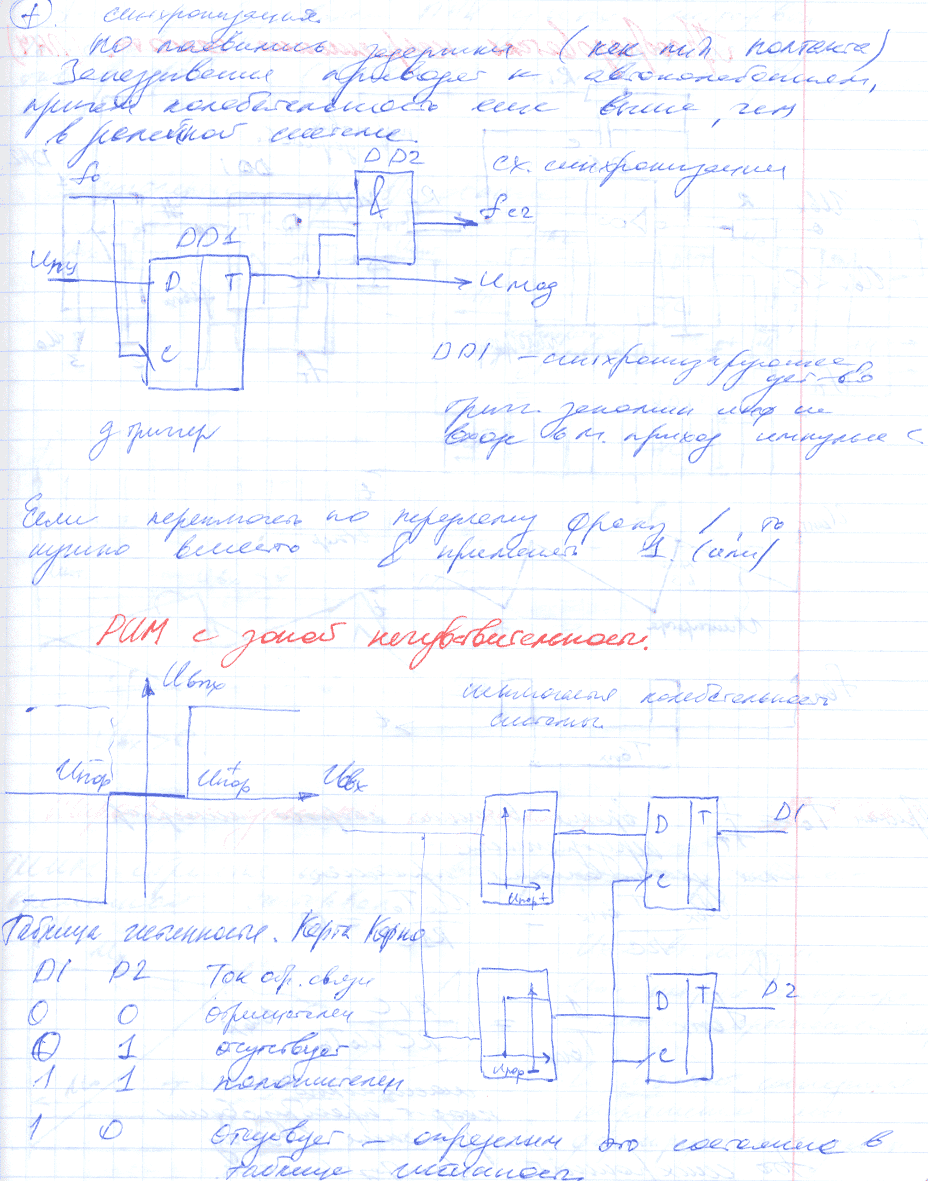 +. синхронизация.
но появились задержки (как min полтакта)
Запаздывания приводят к автоколебаниям,
причем колебательность еще выше, чем
в релейной системе.
f₀
DD2
&
fсг
сх. синхронизации
Uпу
DD1
D T
C
Uмод
DD1 – синхронизирующее
уст-во
д триггер
триг. запомин инф на
входе в м. приход импульса C
Если переключать по переднему фронту /, то
нужно вместо & применять 1 (или)
РИМ с зоной нечувствительности.
Uвых
U⁻пор
U⁺пор
Uвх
колебательность
системы.
Uпор+
D T
C
D1
Uпор–
D T
C
D2
Таблица истинности. Карта Карно
D1 D2 Ток обр. связи
0 0 отрицателен
0 1 отсутствует
1 1 положителен
1 0 отсутствует – определим это состояние в
таблице истинности